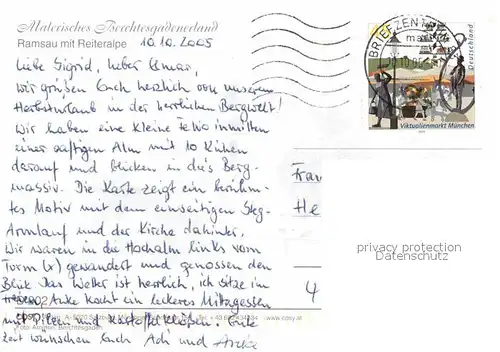 Malerisches Berchtesgadenerland
Ramsau mit Reiteralpe 10.10.2005
Liebe Sigrid, lieber
wir grüßen Euch herzlich von unserem
Herbsturlaub in der herrlichen Bergwelt!
Wir haben eine kleine inmitten
einer saftigen Alm mit 10 Kühen
darauf und blicken in dies Berg-
massiv. Die Karte zeigt ein berühm-
tes Motiv mit dem einseitigen Steg,
und der Kirche dahinter.
Wir waren in die Hochalm links vom
Turm (x) gewandert und genossen den
Blick. Das Wetter ist herrlich, ich sitze im
Freien, Anke kocht ein leckeres Mittagessen
mit Pilzen und Kartoffelklößen. Gute
Zeit wünschen Euch und Anke
Foto: Berchtesgaden
www.cosy.at
BRIEFZENTRUM
Deutschland
Viktualienmarkt München
Frau
He
4
privacy protection
Datenschutz